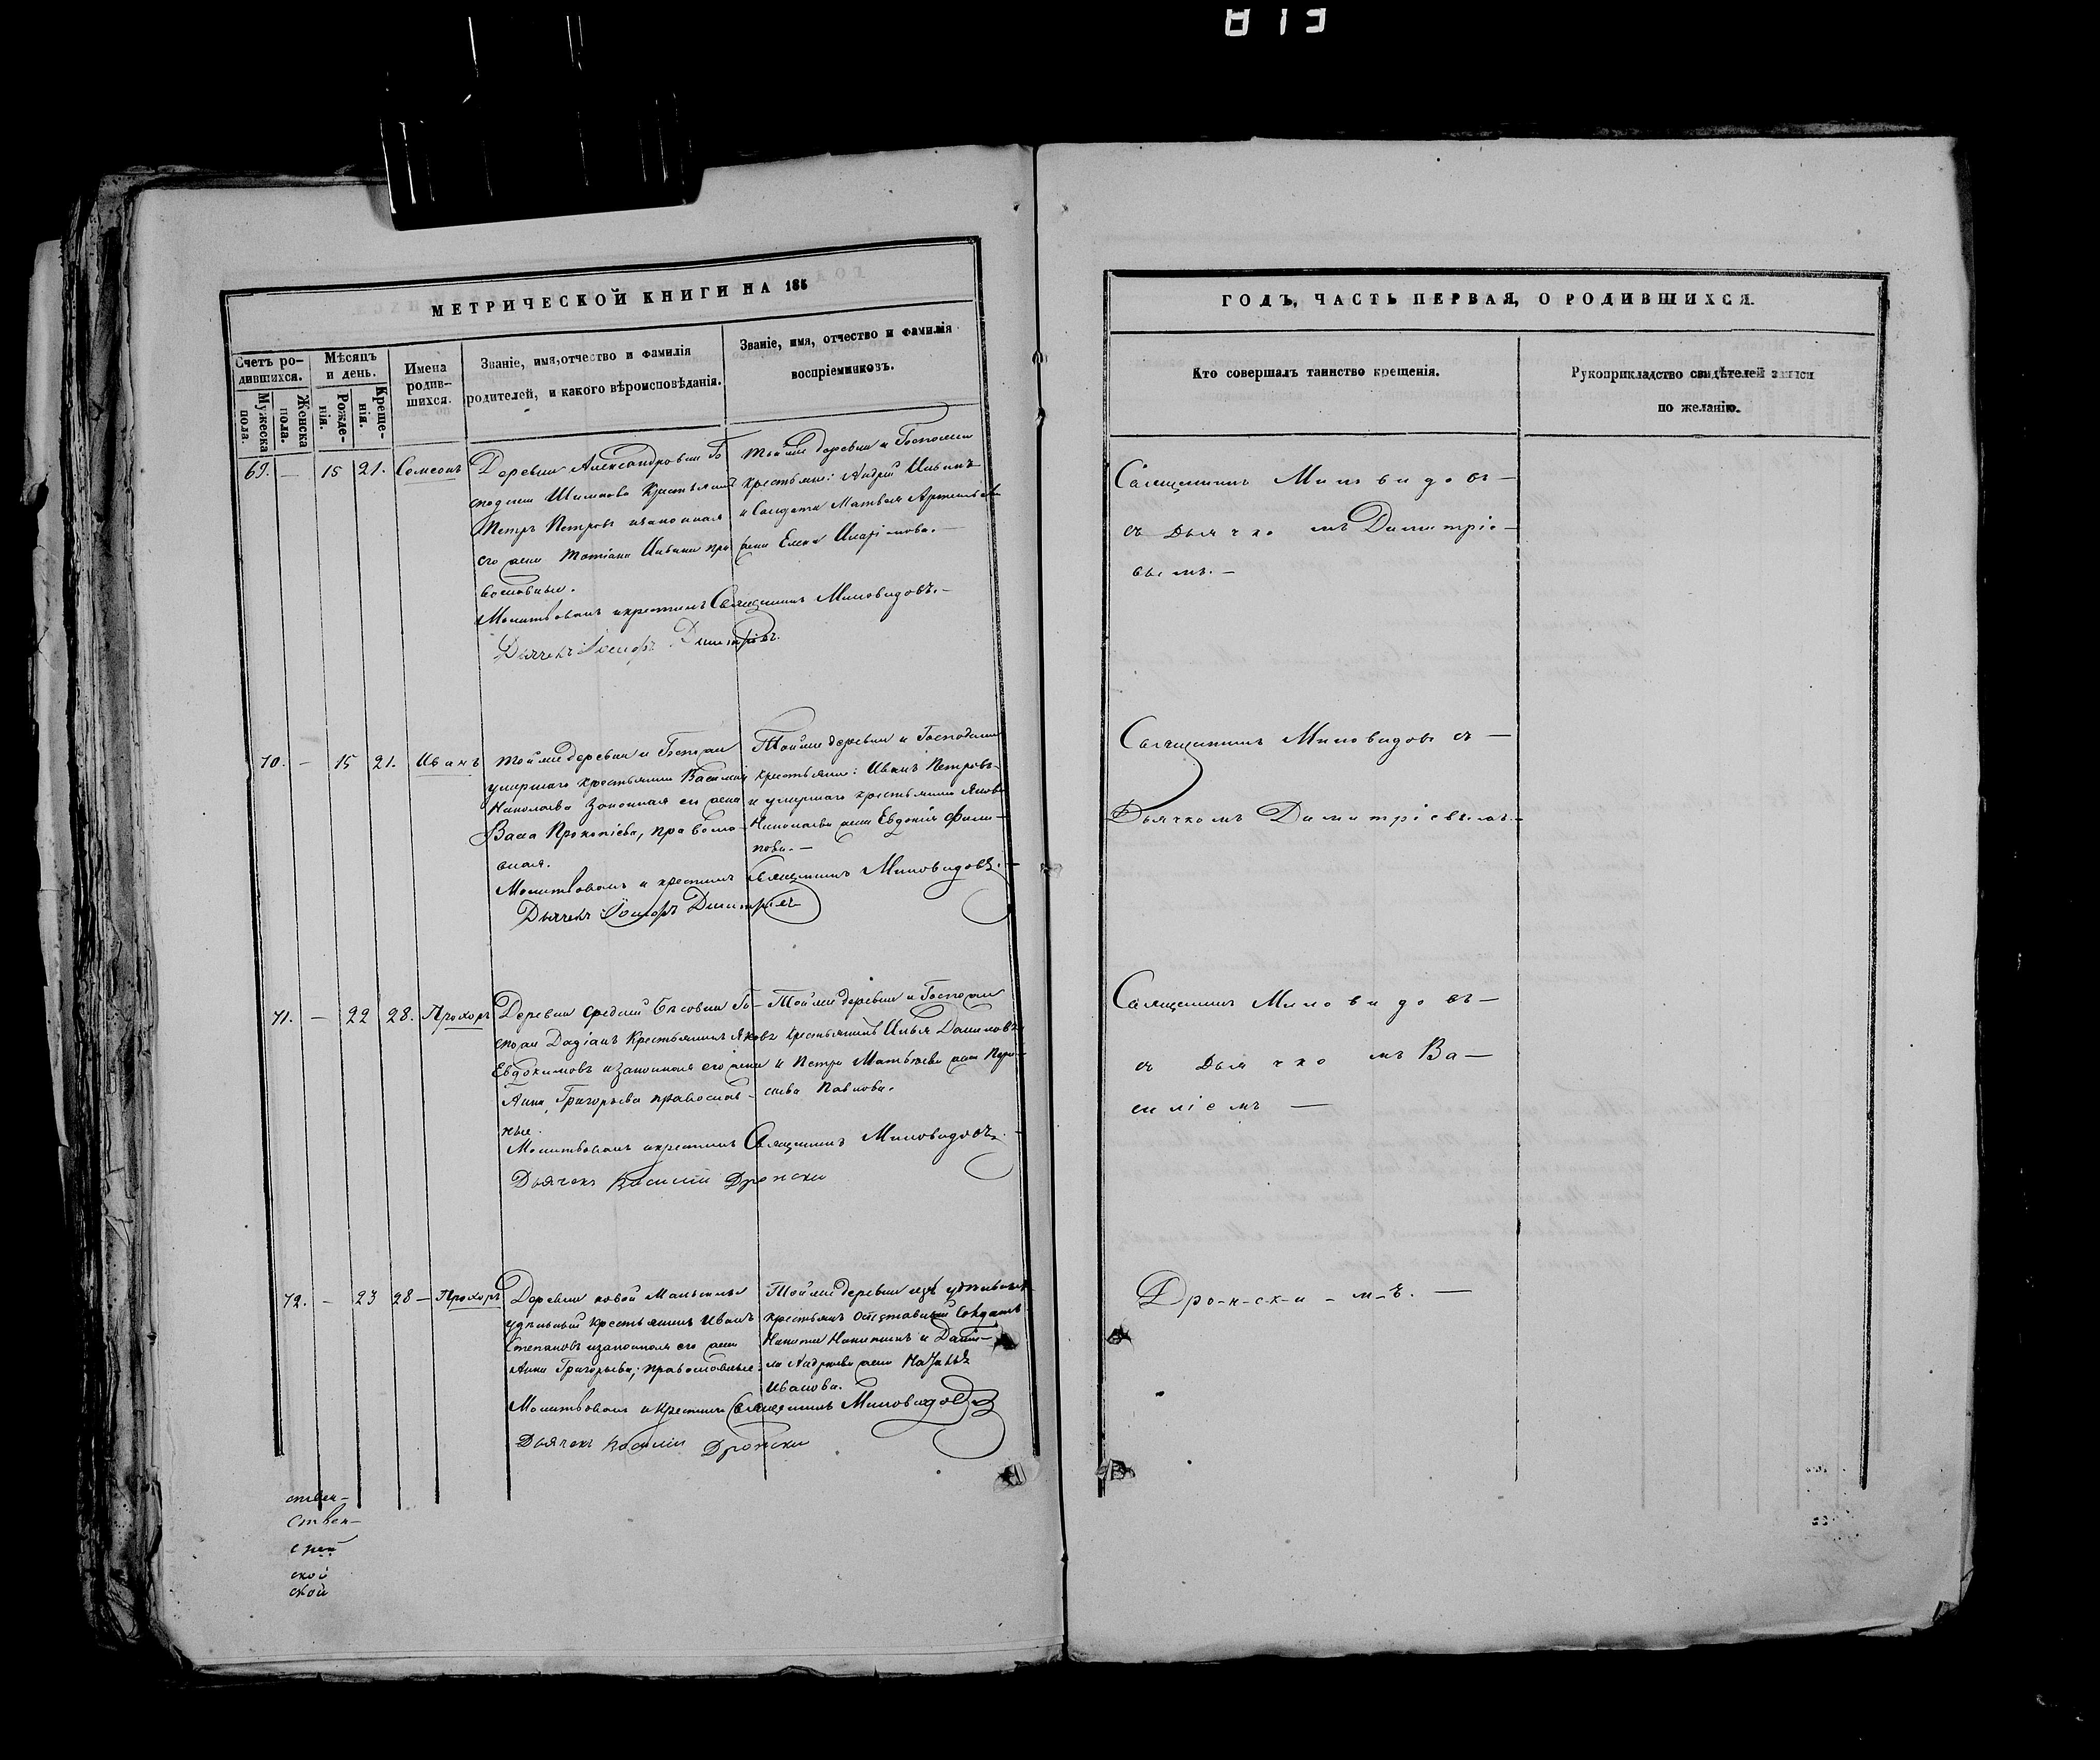 МЕТРИЧЕСКОЙ КНИГИ НА 185
Счетъ ро-
дившихся.
Мужеска
пола.
Женска
пола.
Мѣсяцъ
и день.
Рожде-
нія.
Креще-
нія.
Имена
родив-
шихся.
Званіе, имя, отчество и фамилія
родителей, и какого вѣроисповѣданія.
Званіе, имя, отчество и фамилія
воспріемниковъ.
69. — 15 21. Самсонъ
Деревни Александровки Го
Петръ Петровъ изаконная
его жена Татіана Иванова пра
вославные.
Молитвовалъ икрестилъ Священникъ Миловидовъ.—
Дьячекъ Димитріевъ.
тойже деревни и Госпожи
крестьяне: Андрей Ильинъ
и Солдата Матвея
жена Елена Иларіонова.—
70. — 15 21. Иванъ
тойже деревни и Госпожи
умершаго крестьянина Василія
Николаева законная его жена
Прокопіева, правосла-
вная.
Молитвовалъ и крестилъ Священникъ Миловидовъ.—
Дьячекъ Димитріевъ
Тойже деревни и Госпожи
крестьяне: Иванъ Петровъ
и умершаго крестьянина Якова
Николаева жена Евдокія Фили-
пова.—
71. — 22 28. Прохоръ
Деревни средней Го-
спожи Дадіанъ Крестьянинъ Яковъ
Евдокимовъ изаконная его жена
Анна Григорьева православ-
ные.
Молитвовалъ икрестилъ Священникъ Миловидовъ.
Дьячекъ Василій Дронски
Тойже деревни и Госпожи
крестьянинъ Илья Даниловъ
и Петра Матвѣева жена Пара-
скева Павлова.
72. — 23 28— Прохоръ
Деревни новой
удѣльный крестьянинъ Иванъ
Степановъ изаконная его жена
Анна Григорьева, православные:
Молитвовалъ икрестилъ Священникъ Миловидовъ
Дьячекъ Василій Дронски
Тойже деревни изъ удѣльныхъ
крестьянъ отставный Солдатъ
Никита Никитинъ и Дани-
ла Андреева жена Наталья
Иванова.
ствен-
ствен-
ской
ской
ГОДЪ, ЧАСТЬ ПЕРВАЯ, О РОДИВШИХСЯ.
Кто совершалъ таинство крещенія.
Рукоприкладство свидѣтелей записи
по желанію.
Священникъ Миловидовъ—
съ Дьячкомъ Димитріе—
вымъ.—
Священникъ Миловидовъ съ—
Дьячкомъ Димитріевымъ.—
Священникъ Миловидовъ—
съ Дьячкомъ Ва—
силіемъ —
Дро-н-ск-и-м-ъ. —